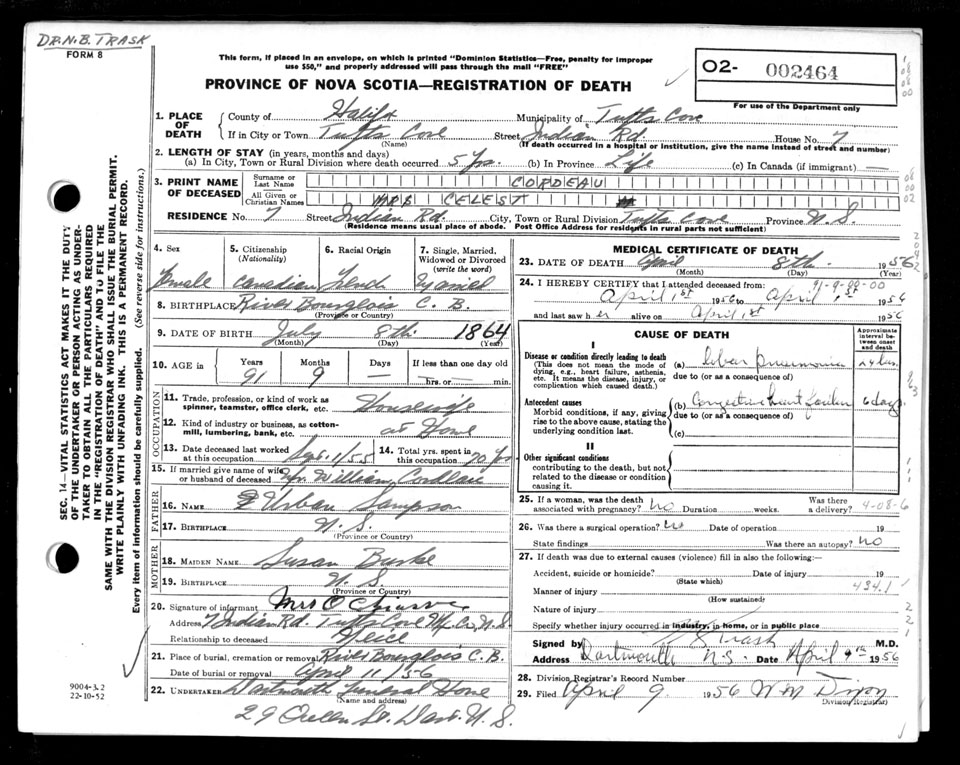 DR. N. B. TRASK
FORM 8
This form, if placed in an envelope, on which is printed "Dominion Statistics—Free, penalty for improper
use $50," and properly addressed will pass through the mail "FREE"
PROVINCE OF NOVA SCOTIA—REGISTRATION OF DEATH
O2- 002464
For use of the Department only
SEC. 14—VITAL STATISTICS ACT MAKES IT THE DUTY
OF THE UNDERTAKER OR PERSON ACTING AS UNDER-
TAKER TO OBTAIN ALL THE PARTICULARS REQUIRED
IN THE "REGISTRATION OF DEATH" AND TO FILE THE
SAME WITH THE DIVISION REGISTRAR WHO SHALL ISSUE THE BURIAL PERMIT.
WRITE PLAINLY WITH UNFADING INK. THIS IS A PERMANENT RECORD.
Every item of information should be carefully supplied. (See reverse side for instructions.)
1. PLACE OF DEATH
County of Halifx Municipality of Tufts Cove
If in City or Town Tufts Cove Street Indian Rd. House No. 7
(Name) (If death occurred in a hospital or institution, give the name instead of street and number)
2. LENGTH OF STAY (in years, months and days)
(a) In City, Town or Rural Division where death occurred 5 Yrs. (b) In Province Life (c) In Canada (if immigrant)
3. PRINT NAME OF DECEASED
Surname or Last Name CORDEAU
All Given or Christian Names MRS CELEST
RESIDENCE No. 7 Street Indian Rd. City, Town or Rural Division Tufts Cove Province N.S.
(Residence means usual place of abode. Post Office Address for residents in rural parts not sufficient)
4. Sex Female
5. Citizenship (Nationality) Canadian
6. Racial Origin French
7. Single, Married, Widowed or Divorced (write the word) Married
8. BIRTHPLACE River Bourgeois C. B.
(Province or Country)
9. DATE OF BIRTH July 8th 1864
(Month) (Day) (Year)
10. AGE Years 91 Months 9 Days — If less than one day old
hrs. or min.
OCCUPATION
11. Trade, profession, or kind of work as spinner, teamster, office clerk, etc. Housewife
12. Kind of industry or business, as cotton-mill, lumbering, bank, etc. at Home
13. Date deceased last worked at this occupation Sept. 1/55 14. Total yrs. spent in this occupation 70 Yrs
15. If married give name of wife or husband of deceased Mr. William
FATHER
16. NAME Urban Sampson
17. BIRTHPLACE N. S.
(Province or Country)
MOTHER
18. MAIDEN NAME Susan Burke
19. BIRTHPLACE N. S.
(Province or Country)
20. Signature of informant Mrs O
Address 7 Indian Rd. Tufts Cove Hfx Co, N.S.
Relationship to deceased Neice
21. Place of burial, cremation or removal River Bourgeois C.B.
Date of burial or removal April 11/56
22. UNDERTAKER Dartmouth Funeral Home
(Name and address)
29 Queen St. Dart. N. S.
9004-3.2
22-10-52
MEDICAL CERTIFICATE OF DEATH
23. DATE OF DEATH April 8th 1956
(Month) (Day) (Year)
24. I HEREBY CERTIFY that I attended deceased from:
91-9-00-00
April 1st 1956 to April 1st 1956
and last saw her alive on April 1st 1956
CAUSE OF DEATH
Approximate interval between onset and death
I
Disease or condition directly leading to death
(This does not mean the mode of dying, e.g., heart failure, asthenia, etc. It means the disease, injury, or complication which caused death.)
(a) lobar pneumonia
due to (or as a consequence of)
Antecedent causes
Morbid conditions, if any, giving rise to the above cause, stating the underlying condition last.
(b) Congestive heart failure 6 days
due to (or as a consequence of)
(c)
II
Other significant conditions
contributing to the death, but not related to the disease or condition causing it.
25. If a woman, was the death associated with pregnancy? no Duration weeks. Was there a delivery? 4-08-6
26. Was there a surgical operation? no Date of operation 19
State findings Was there an autopsy? no
27. If death was due to external causes (violence) fill in also the following:—
Accident, suicide or homicide? Date of injury 19
(State which)
Manner of injury 434.1
(How sustained)
Nature of injury
Specify whether injury occurred in industry, in home, or in public place
Signed by Trask M.D.
Address Dartmouth N.S. Date April 9th 1956
28. Division Registrar's Record Number
29. Filed April 9 1956 W M Dixon
Division Registrar